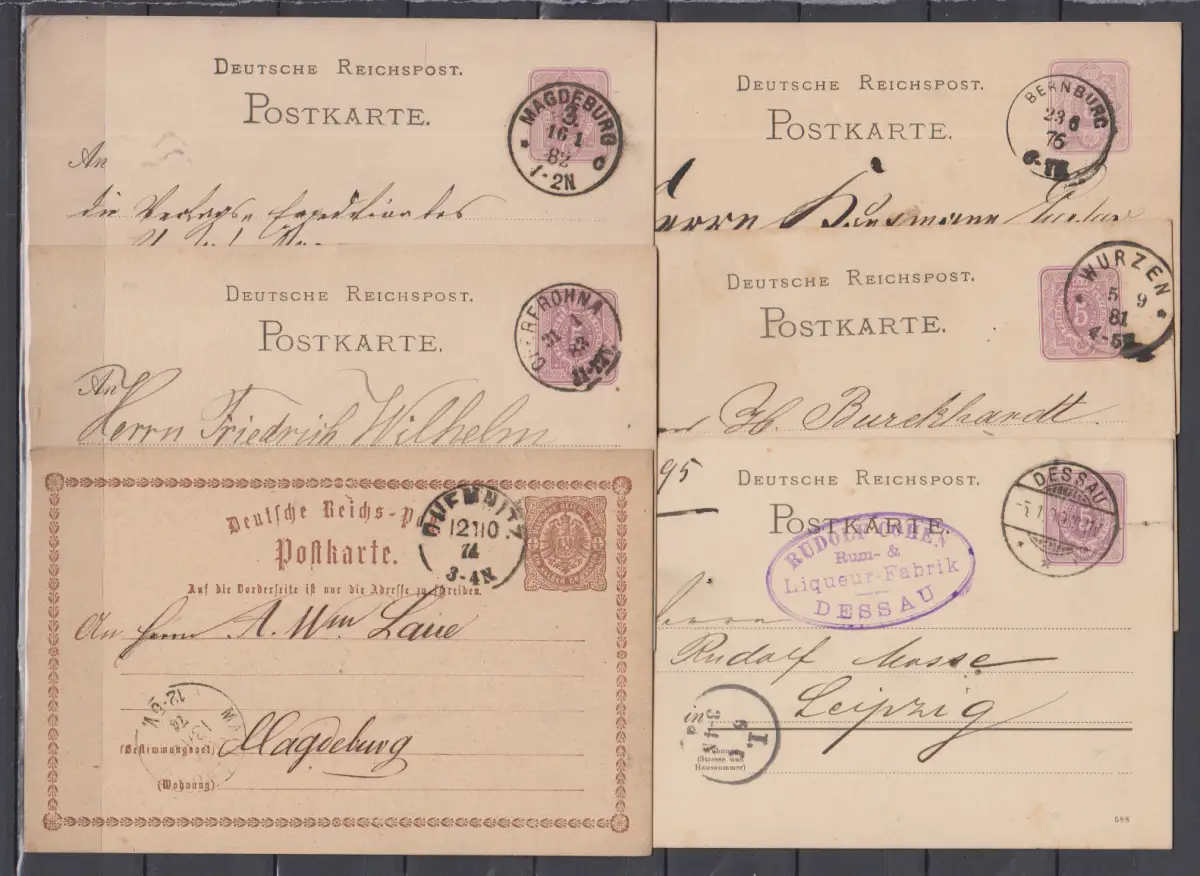 DEUTSCHE REICHSPOST.
POSTKARTE.
An
die Verlags-Expedition des
MAGDEBURG
3.
16 1
82
1-2N
C
DEUTSCHE REICHSPOST.
POSTKARTE.
BERNBURG
23 6
76
DEUTSCHE REICHSPOST.
POSTKARTE.
An
Herrn Friedrich Wilhelm
OBERFROHNA
31 1
DEUTSCHE REICHSPOST.
POSTKARTE.
H. Burckhardt.
WURZEN
5 9
81
5
Deutsche Reichs-p
Postkarte.
Auf die Vorderseite ist nur die Adresse zu schreiben.
CHEMNITZ
12 10
74
3-4N
An Herrn A. Wm Laue
(Bestimmungsort) Magdeburg
(Wohnung)
95
DEUTSCHE REICHSPOST.
POSTKARTE.
DESSAU
RUDOLF COHEN
Rum- &
Liqueur-Fabrik
DESSAU
Rudolf Mosse
in Leipzig
Wohnung
(Strasse und
Hausnummer)
588